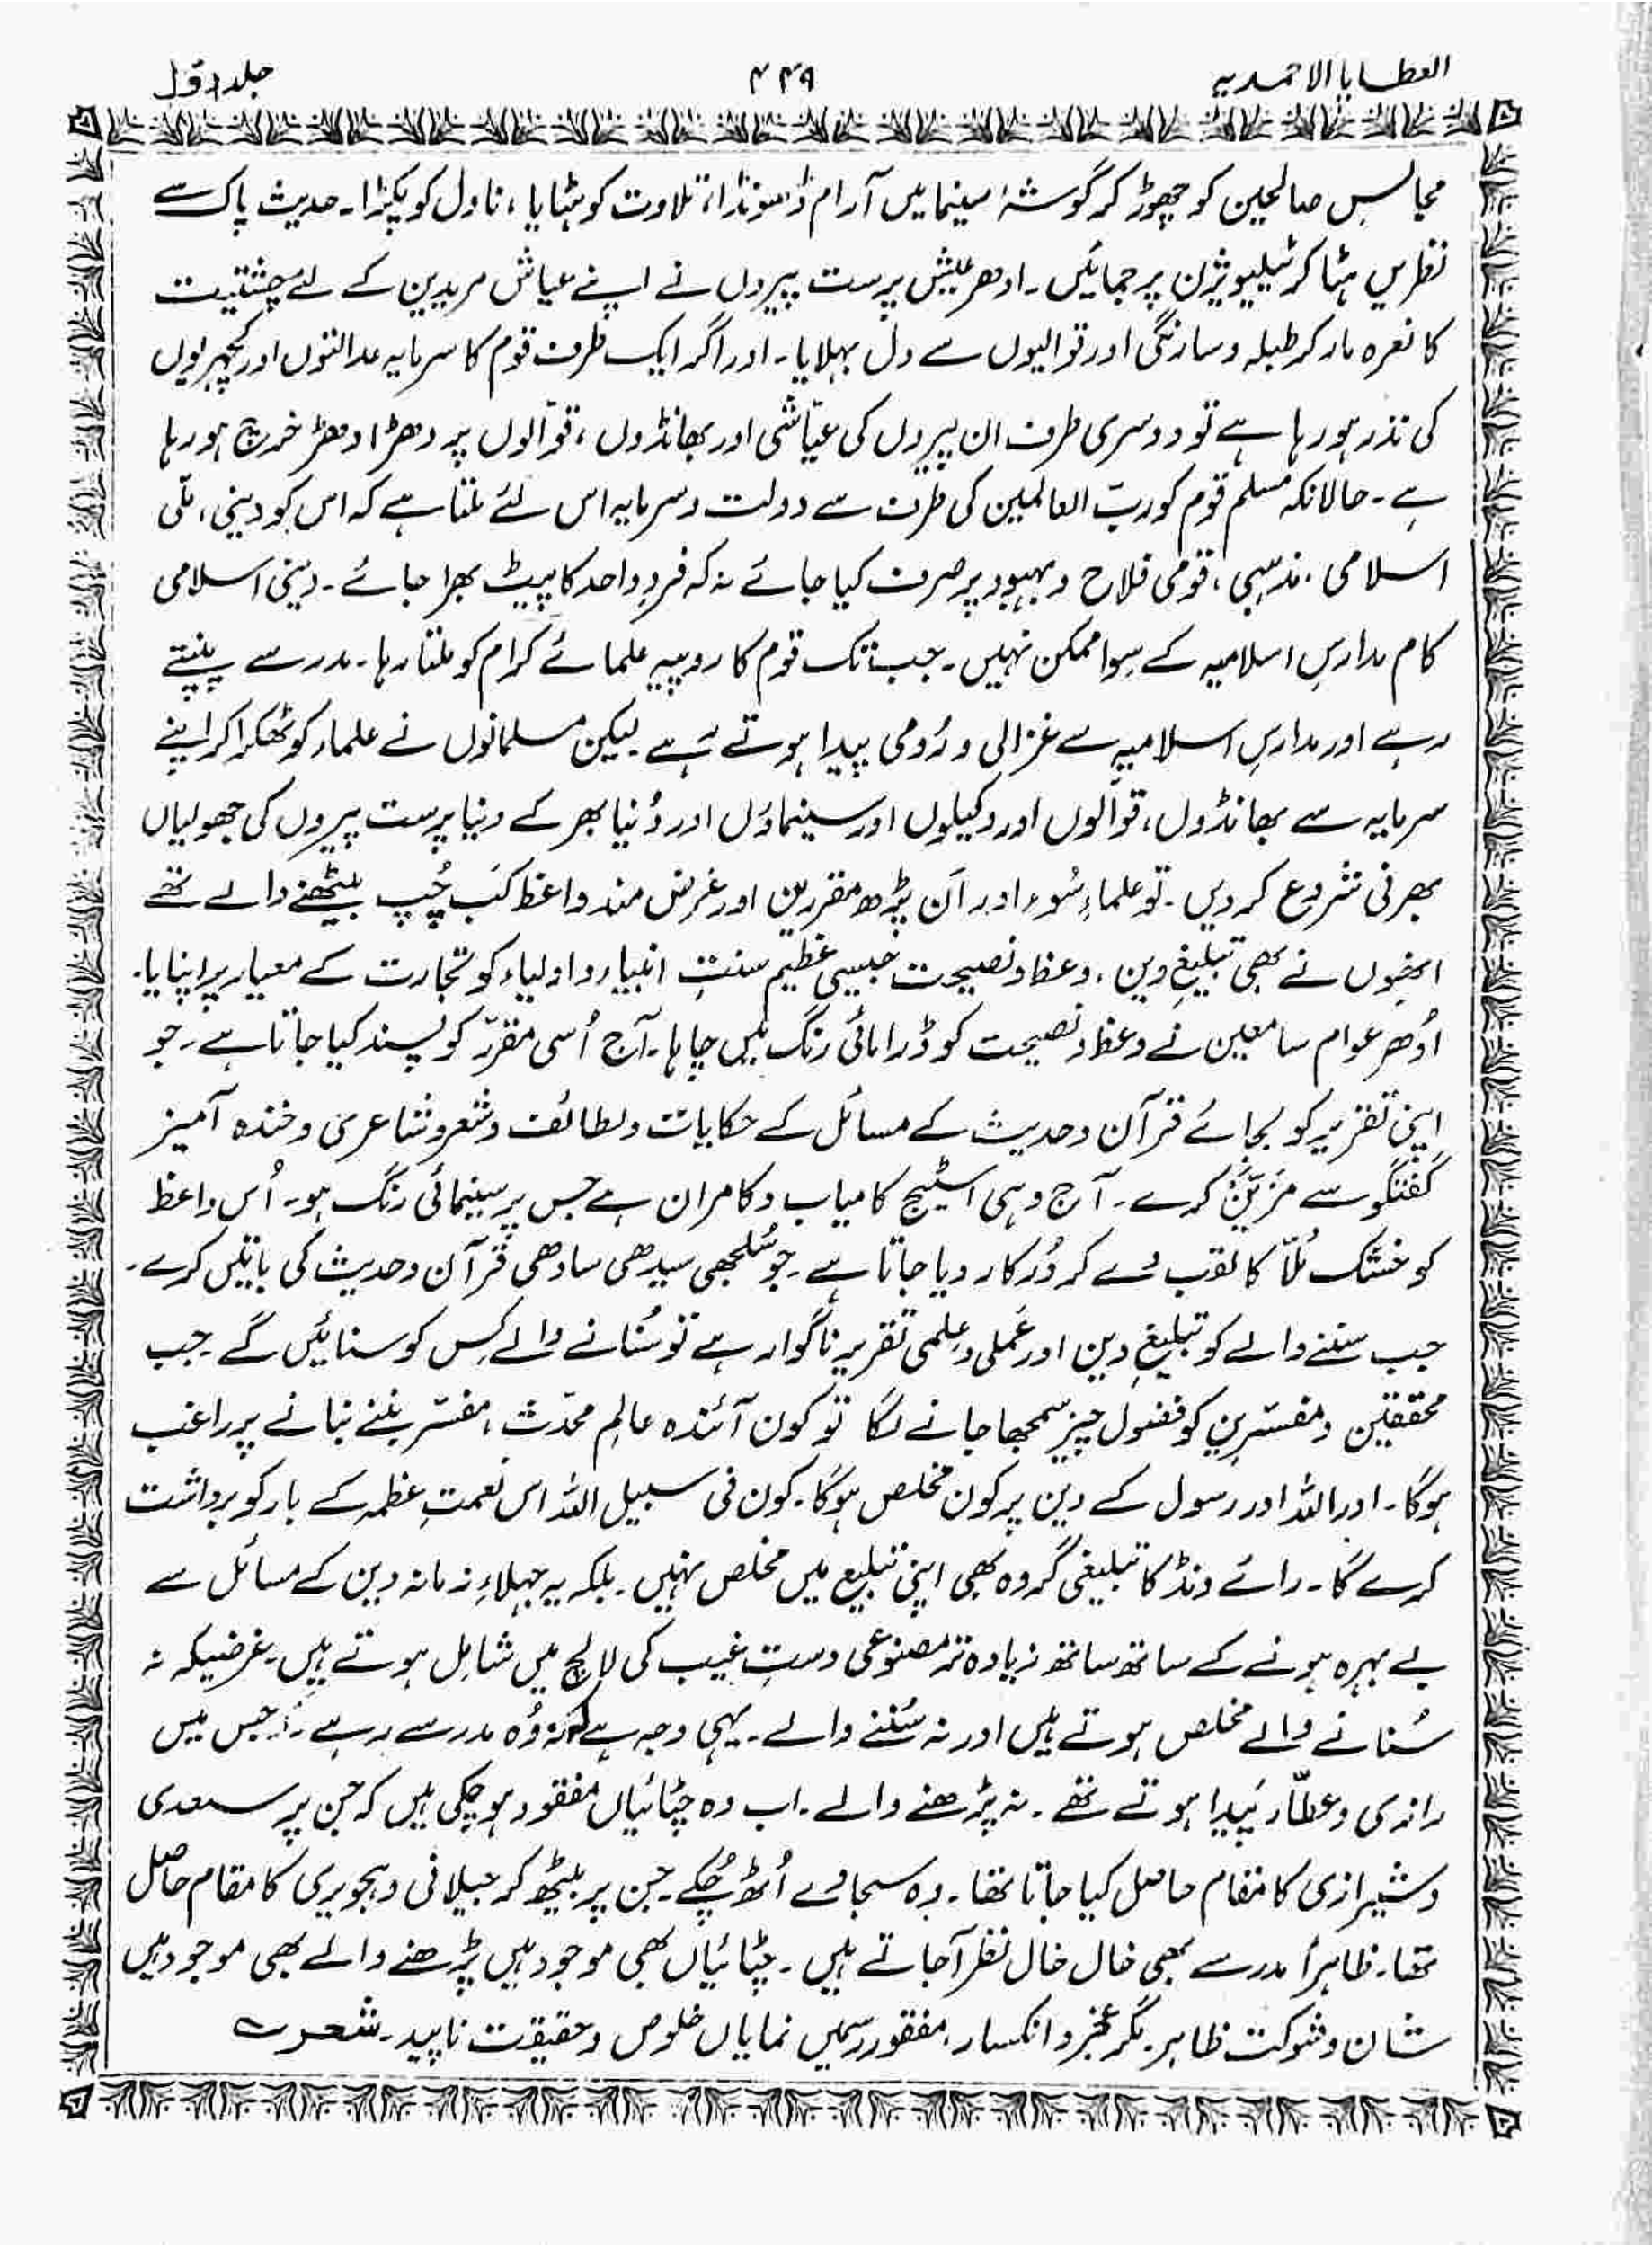 العطایا الاحمدیہ ۴۴۹ جلد اوّل
مجالس صالحین کو چھوڑ کر گوشۂ سینما میں آرام ڈھونڈا، تلاوت کو ہٹایا، ناول کو پکڑا۔ حدیث پاک سے
نظریں ہٹا کر ٹیلیویژن پر جمائیں۔ ادھر عیش پرست پیروں نے اپنے عیاش مریدین کے لئے چشتیت
کا نعرہ مار کر طبلہ و سارنگی اور قوالیوں سے دل بہلایا۔ اور اگر ایک طرف قوم کا سرمایہ عدالتوں اور کچہریوں
کی نذر ہو رہا ہے تو دوسری طرف ان پیروں کی عیّاشی اور بھانڈوں، قوّالوں پر دھڑا دھڑ خرچ ہو رہا
ہے۔ حالانکہ مسلم قوم کو ربّ العالمین کی طرف سے دولت و سرمایہ اس لئے ملتا ہے کہ اس کو دینی، ملّی
اسلامی، مذہبی، قومی فلاح و بہبود پر صرف کیا جائے نہ کہ فردِ واحد کا پیٹ بھرا جائے۔ دینی اسلامی
کام مدارسِ اسلامیہ کے سِوا ممکن نہیں۔ جب تک قوم کا روپیہ علمائے کرام کو ملتا رہا۔ مدرسے پنپتے
رہے اور مدارسِ اسلامیہ سے غزالی و رُومی پیدا ہوتے رہے۔ لیکن مسلمانوں نے علماء کو ٹھکرا کر اپنے
سرمایہ سے بھانڈوں، قوّالوں اور وکیلوں اور سینماؤں اور دُنیا بھر کے دنیا پرست پیروں کی جھولیاں
بھرنی شروع کر دیں۔ تو علماءِ سُوء اور اَن پڑھ مقررین اور غرض مند واعظ کب چُپ بیٹھنے والے تھے
انھوں نے بھی تبلیغِ دین، وعظ و نصیحت جیسی عظیم سنتِ انبیاء و اولیاء کو تجارت کے معیار پر اپنایا۔
اُدھر عوام سامعین نے وعظ و نصیحت کو ڈرامائی رنگ میں چاہا۔ آج اُسی مقرّر کو پسند کیا جاتا ہے۔ جو
اپنی تقریر کو بجائے قرآن و حدیث کے مسائل کے حکایات و لطائف و شعر و شاعری و خندہ آمیز
گفتگو سے مُزیَّن کرے۔ آج وہی اسٹیج کامیاب و کامران ہے جس پر سینمائی رنگ ہو۔ اُس واعظ
کو خشک مُلّا کا لقب دے کر دُرکار دیا جاتا ہے۔ جو سُلجھی سیدھی سادھی قرآن و حدیث کی باتیں کرے۔
جب سننے والے کو تبلیغِ دین اور عَملی و عِلمی تقریر ناگوار ہے تو سُنانے والے کِس کو سنائیں گے۔ جب
محققین و مفسّرین کو فضول چیز سمجھا جانے لگا تو کون آئندہ عالم محدّث، مفسّر بننے بنانے پر راغب
ہوگا۔ اور اللہ اور رسول کے دین پر کون مخلص ہوگا۔ کون فی سبیل اللہ اس نعمتِ عظمہ کے بار کو برداشت
کرے گا۔ رائے ونڈ کا تبلیغی گروہ بھی اپنی تبلیغ میں مخلص نہیں۔ بلکہ یہ جہلاءِ زمانہ دین کے مسائل سے
بے بہرہ ہونے کے ساتھ ساتھ زیادہ تر مصنوعی دستِ غیب کی لالچ میں شامل ہوتے ہیں۔ غرضیکہ نہ
سُنانے والے مخلص ہوتے ہیں اور نہ سُننے والے۔ یہی وجہ ہے کہ نہ وُہ مدرسے رہے۔ جس میں
رازی و عطّار پَیدا ہوتے تھے۔ نہ پڑھنے والے۔ اب وہ چٹائیاں مفقود ہو چکی ہیں کہ جن پر سعدی
و شیرازی کا مقام حاصل کیا جاتا تھا۔ وہ سجادے اُٹھ چُکے۔ جن پر بیٹھ کر جیلانی و ہجویری کا مقام حاصل
تھا۔ ظاہراً مدرسے بھی خال خال نظر آجاتے ہیں۔ چٹائیاں بھی موجود ہیں پڑھنے والے بھی موجود ہیں
شان و شوکت ظاہر۔ مگر عجز و انکسار مفقود رسمیں نمایاں خلوص و حقیقت ناپید۔ شعر ؎